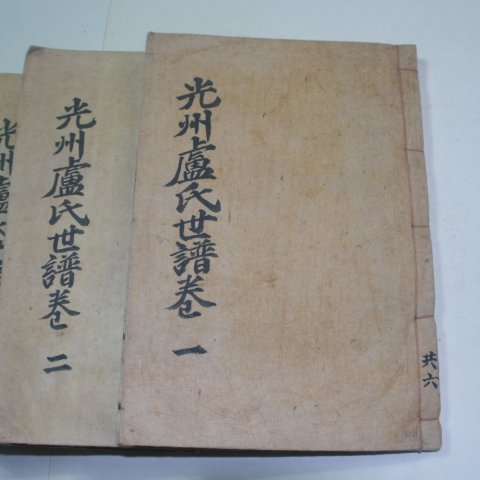 光州盧氏世譜卷 一
共六
光州盧氏世譜卷 二
光州盧氏世譜